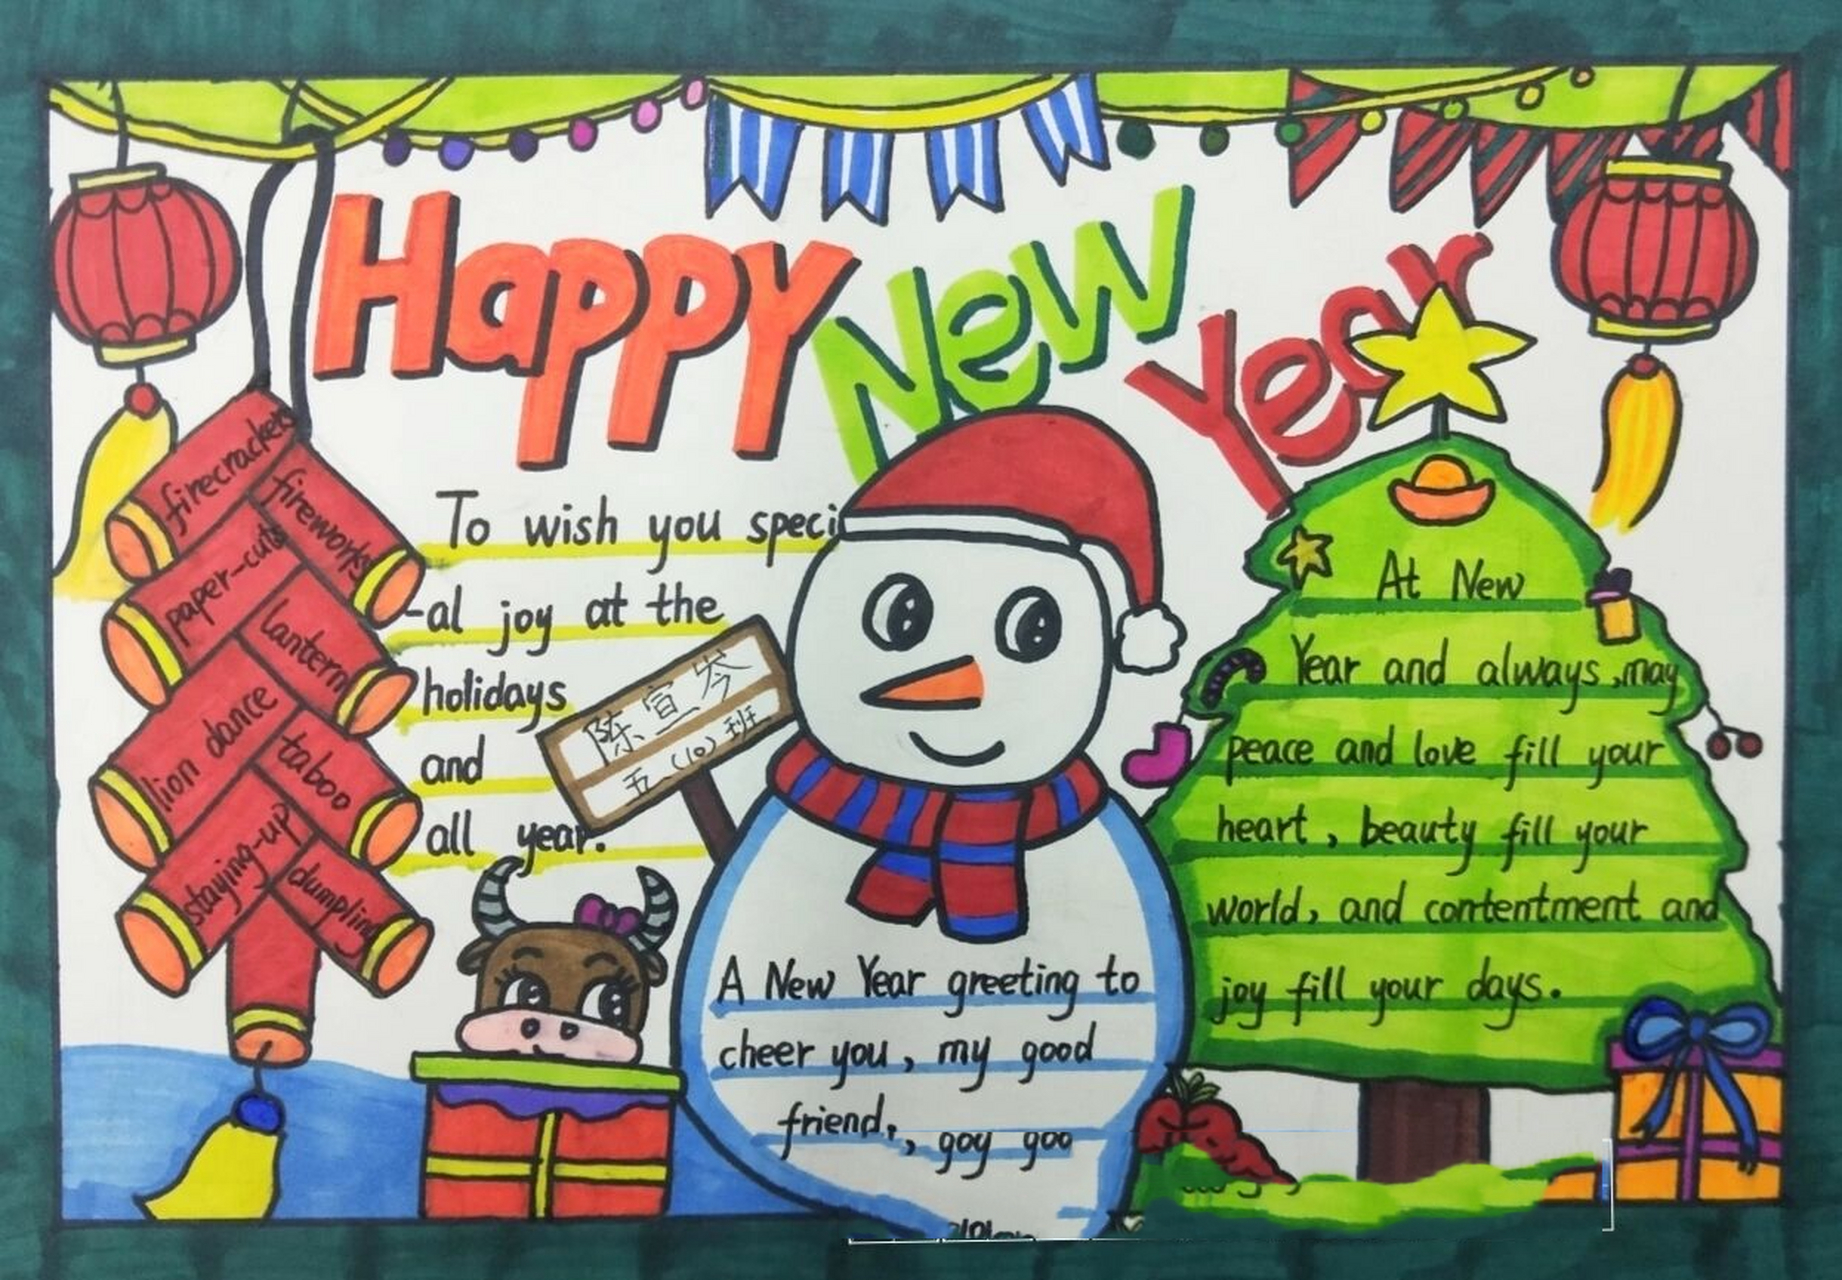 Happy New Year
firecrackers
fireworks
paper-cuts
lantern
lion dance
taboo
staying-up
dumpling
To wish you speci
-al joy at the
holidays
and
all year.
陈宣岑
五(10)班
A New Year greeting to
cheer you, my good
friend, , goy goo
At New
Year and always, may
peace and love fill your
heart, beauty fill your
world, and contentment and
joy fill your days.